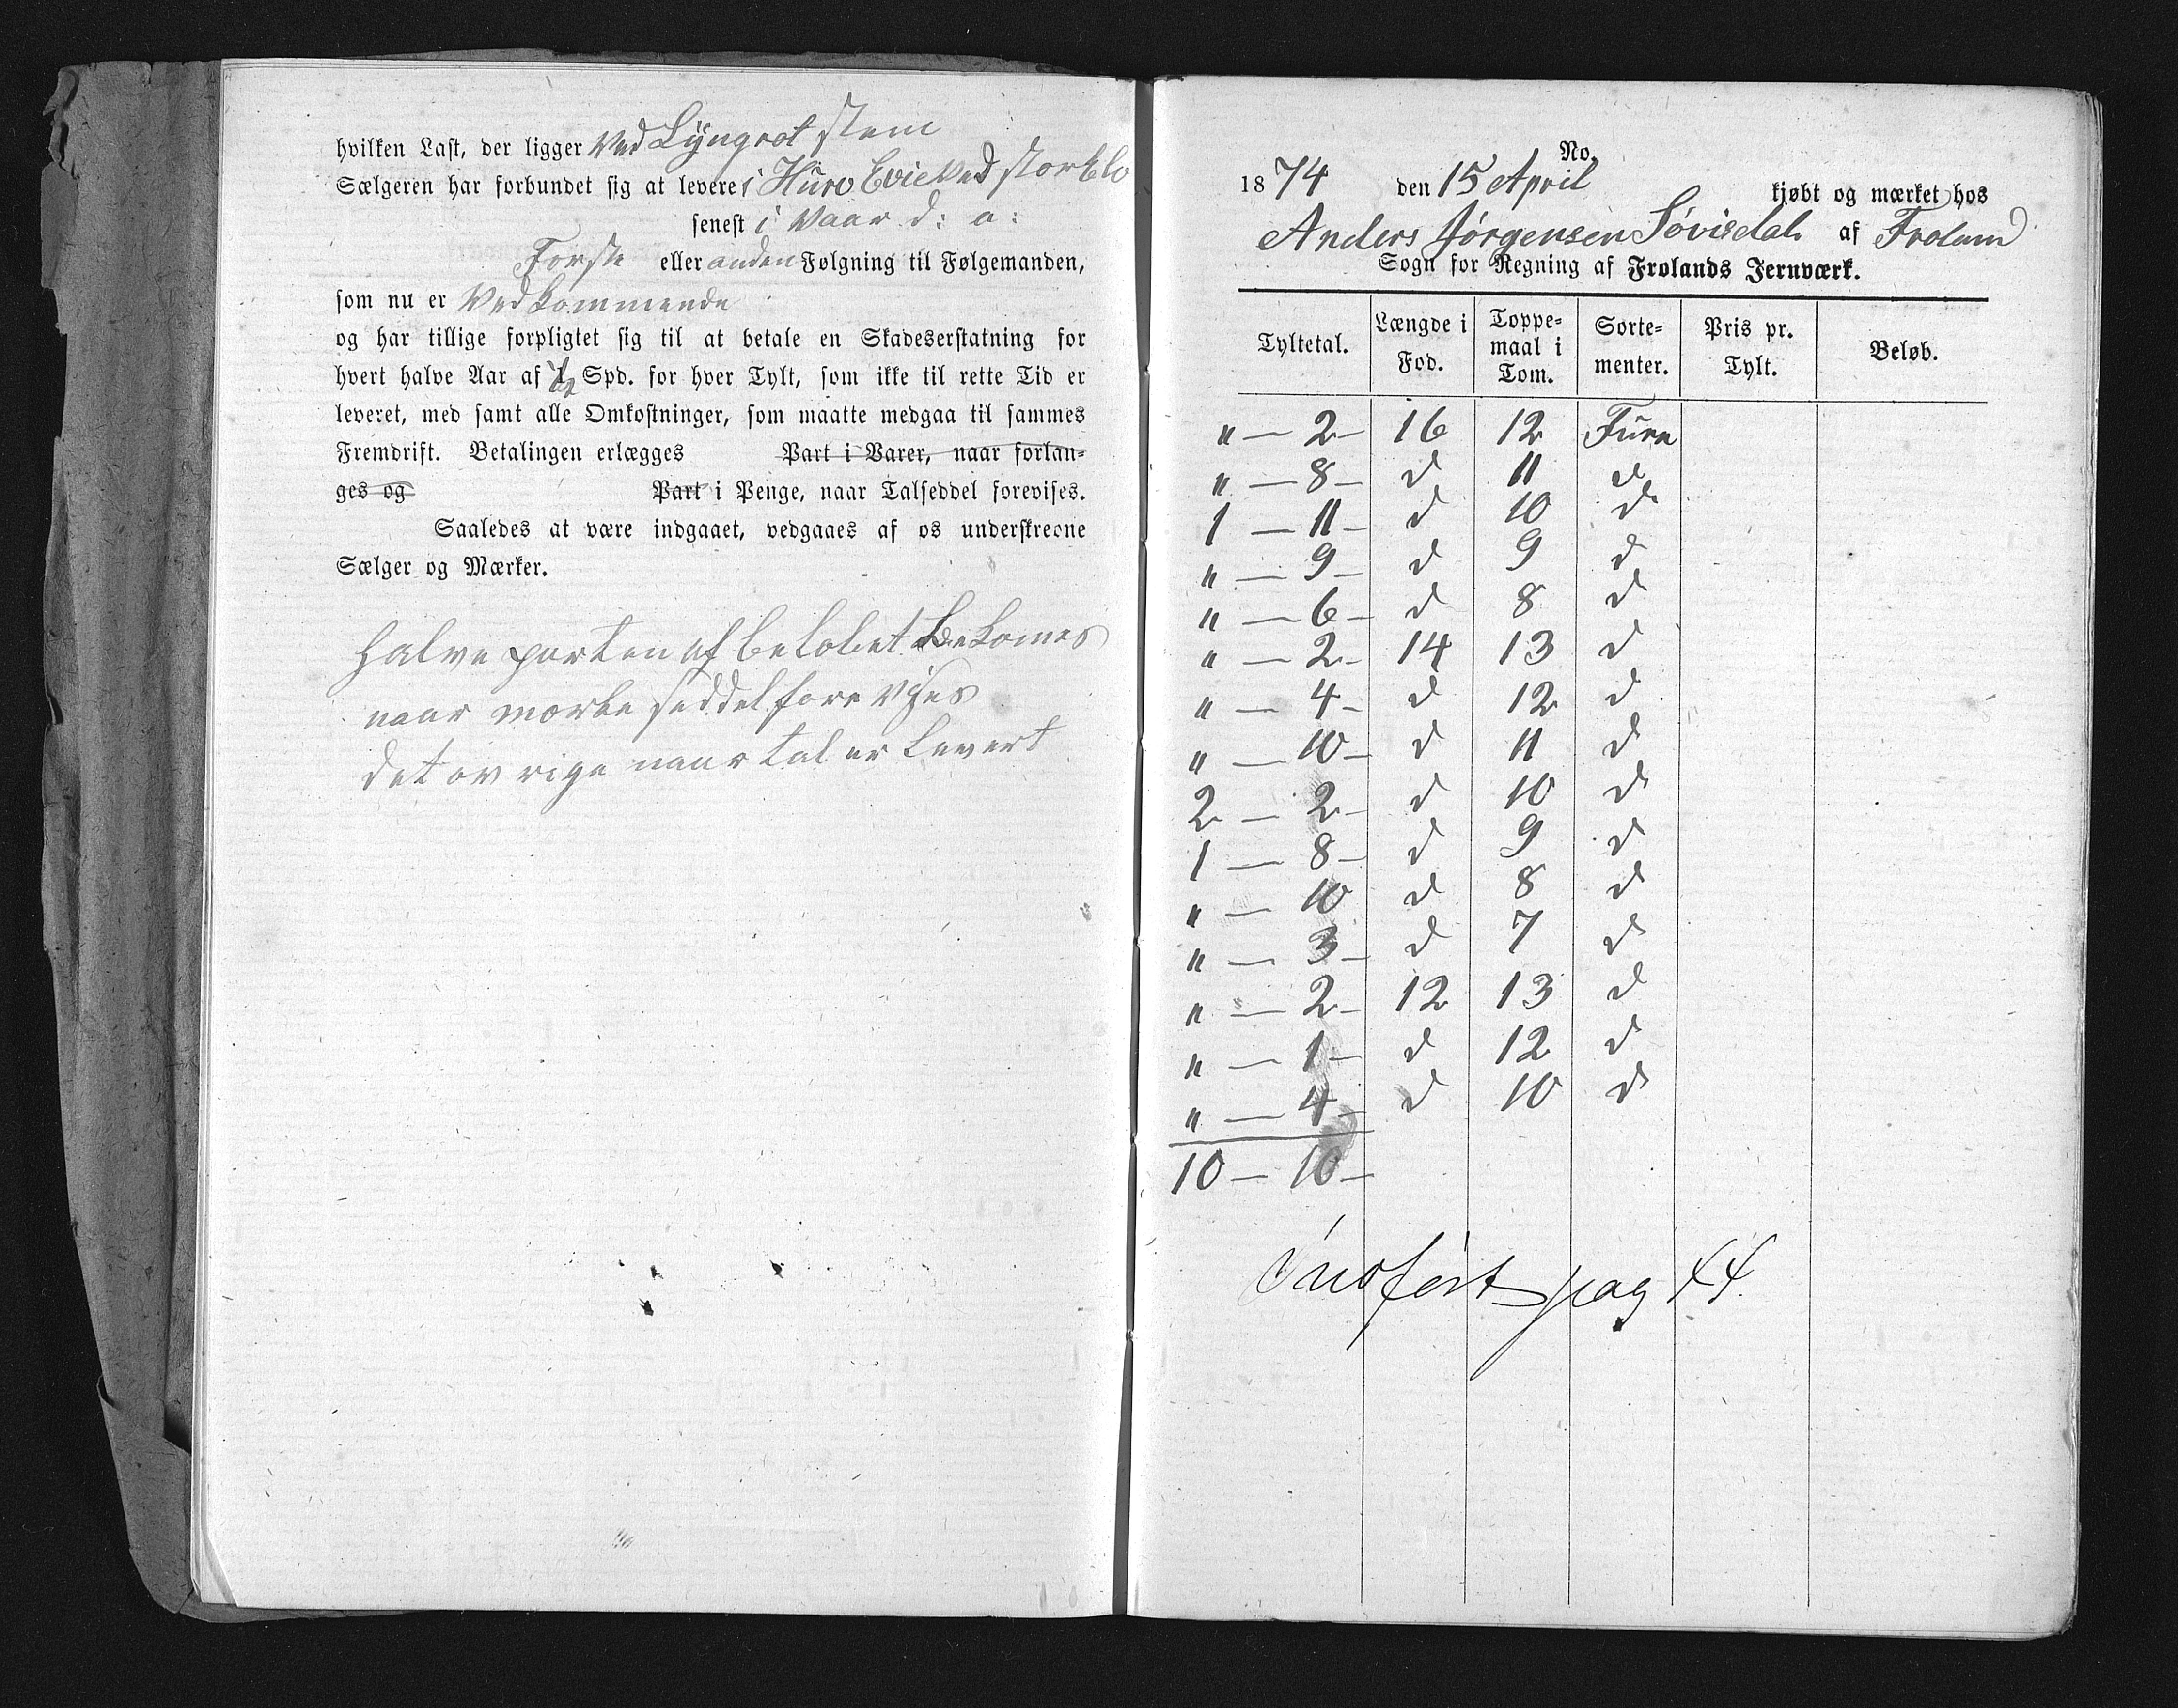 hvilken Last, der ligger Ved Lÿngrot stem
Sælgeren har forbundet sig at levere i Hurv Evie Ved storElv
senest i Vaar d: a:
Forste eller anden Følgning til Følgemanden,
som nu er Vedkommende
og har tillige forpligtet sig til at betale en Skadeserstatning for
hvert halve Aar af 1/2 Spd. for hver Tylt, som ikke til rette Tid er
leveret, med samt alle Omkostninger, som maatte medgaa til sammes
Fremdrift. Betalingen erlægges Part i Varer, naar forlan-
ges og Part i Penge, naar Talseddel forevises.
Saaledes at være indgaaet, vedgaaes af os underskrevne
Sælger og Mærker.
Halve parten af belobet bekomes
naar morke seddel fore vises
det ov rige naar tal er Levert
No.
1874 den 15 April kjøbt og mærket hos
Anders Jørgensen Søvisdal af Froland
Sogn for Regning af Frolands Jernværk.
Tyltetal. Længde i Fod. Toppe-maal i Tom. Sorte-menter. Pris pr. Tylt. Beløb.
" — 2 — 16 12 Furu
" — 8 — d 11 d
1 — 11 — d 10 d
" — 9 — d 9 d
" — 6 — d 8 d
" — 2 — 14 13 d
" — 4 — d 12 d
" — 10 — d 11 d
2 — 2 — d 10 d
1 — 8 — d 9 d
" — 10 d 8 d
" — 3 — d 7 d
" — 2 — 12 13 d
" — 1 — d 12 d
" — 4 — d 10 d
10 — 10 —
Indført pag 44.